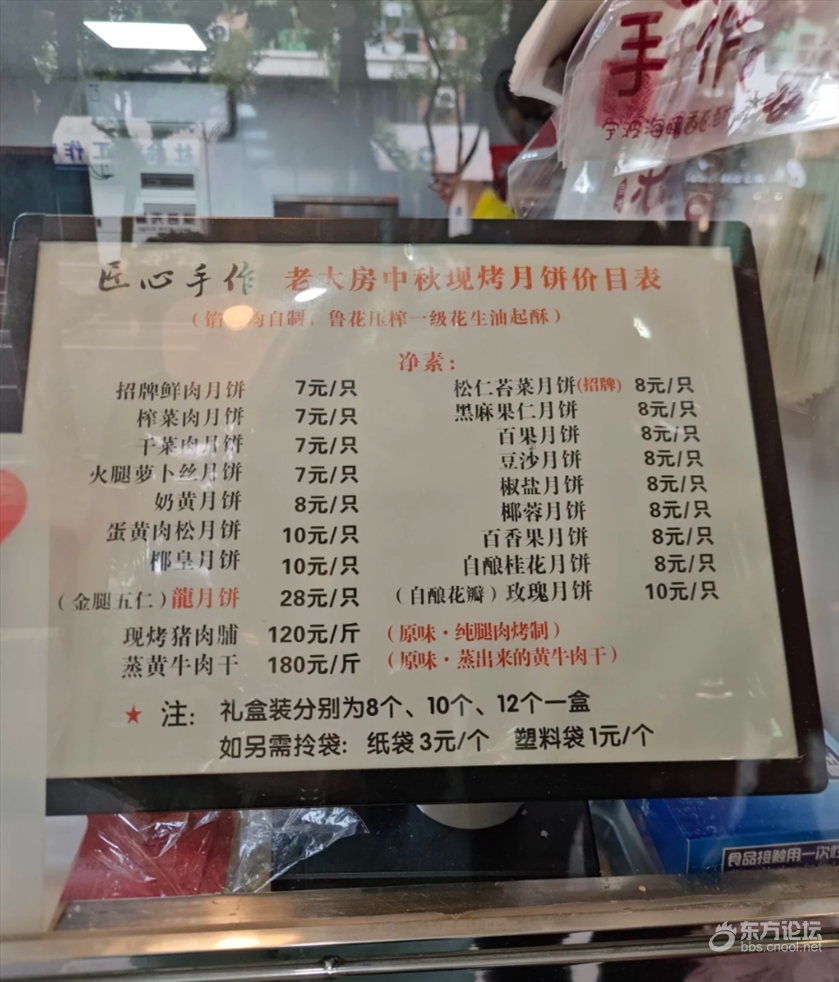 手作
宁波海曙
匠心手作 老大房中秋现烤月饼价目表
自制，鲁花压榨一级花生油起酥）
净素：
招牌鲜肉月饼 7元/只
榨菜肉月饼 7元/只
干菜肉月饼 7元/只
火腿萝卜丝月饼 7元/只
奶黄月饼 8元/只
蛋黄肉松月饼 10元/只
椰皇月饼 10元/只
（金腿五仁）龍月饼 28元/只
松仁苔菜月饼(招牌) 8元/只
黑麻果仁月饼 8元/只
百果月饼 8元/只
豆沙月饼 8元/只
椒盐月饼 8元/只
椰蓉月饼 8元/只
百香果月饼 8元/只
自酿桂花月饼 8元/只
（自酿花瓣）玫瑰月饼 10元/只
现烤猪肉脯 120元/斤 （原味·纯腿肉烤制）
蒸黄牛肉干 180元/斤 （原味·蒸出来的黄牛肉干）
★ 注: 礼盒装分别为8个、10个、12个一盒
如另需拎袋: 纸袋3元/个 塑料袋1元/个
食品接触用一次性
东方论坛
bbs.cnool.net